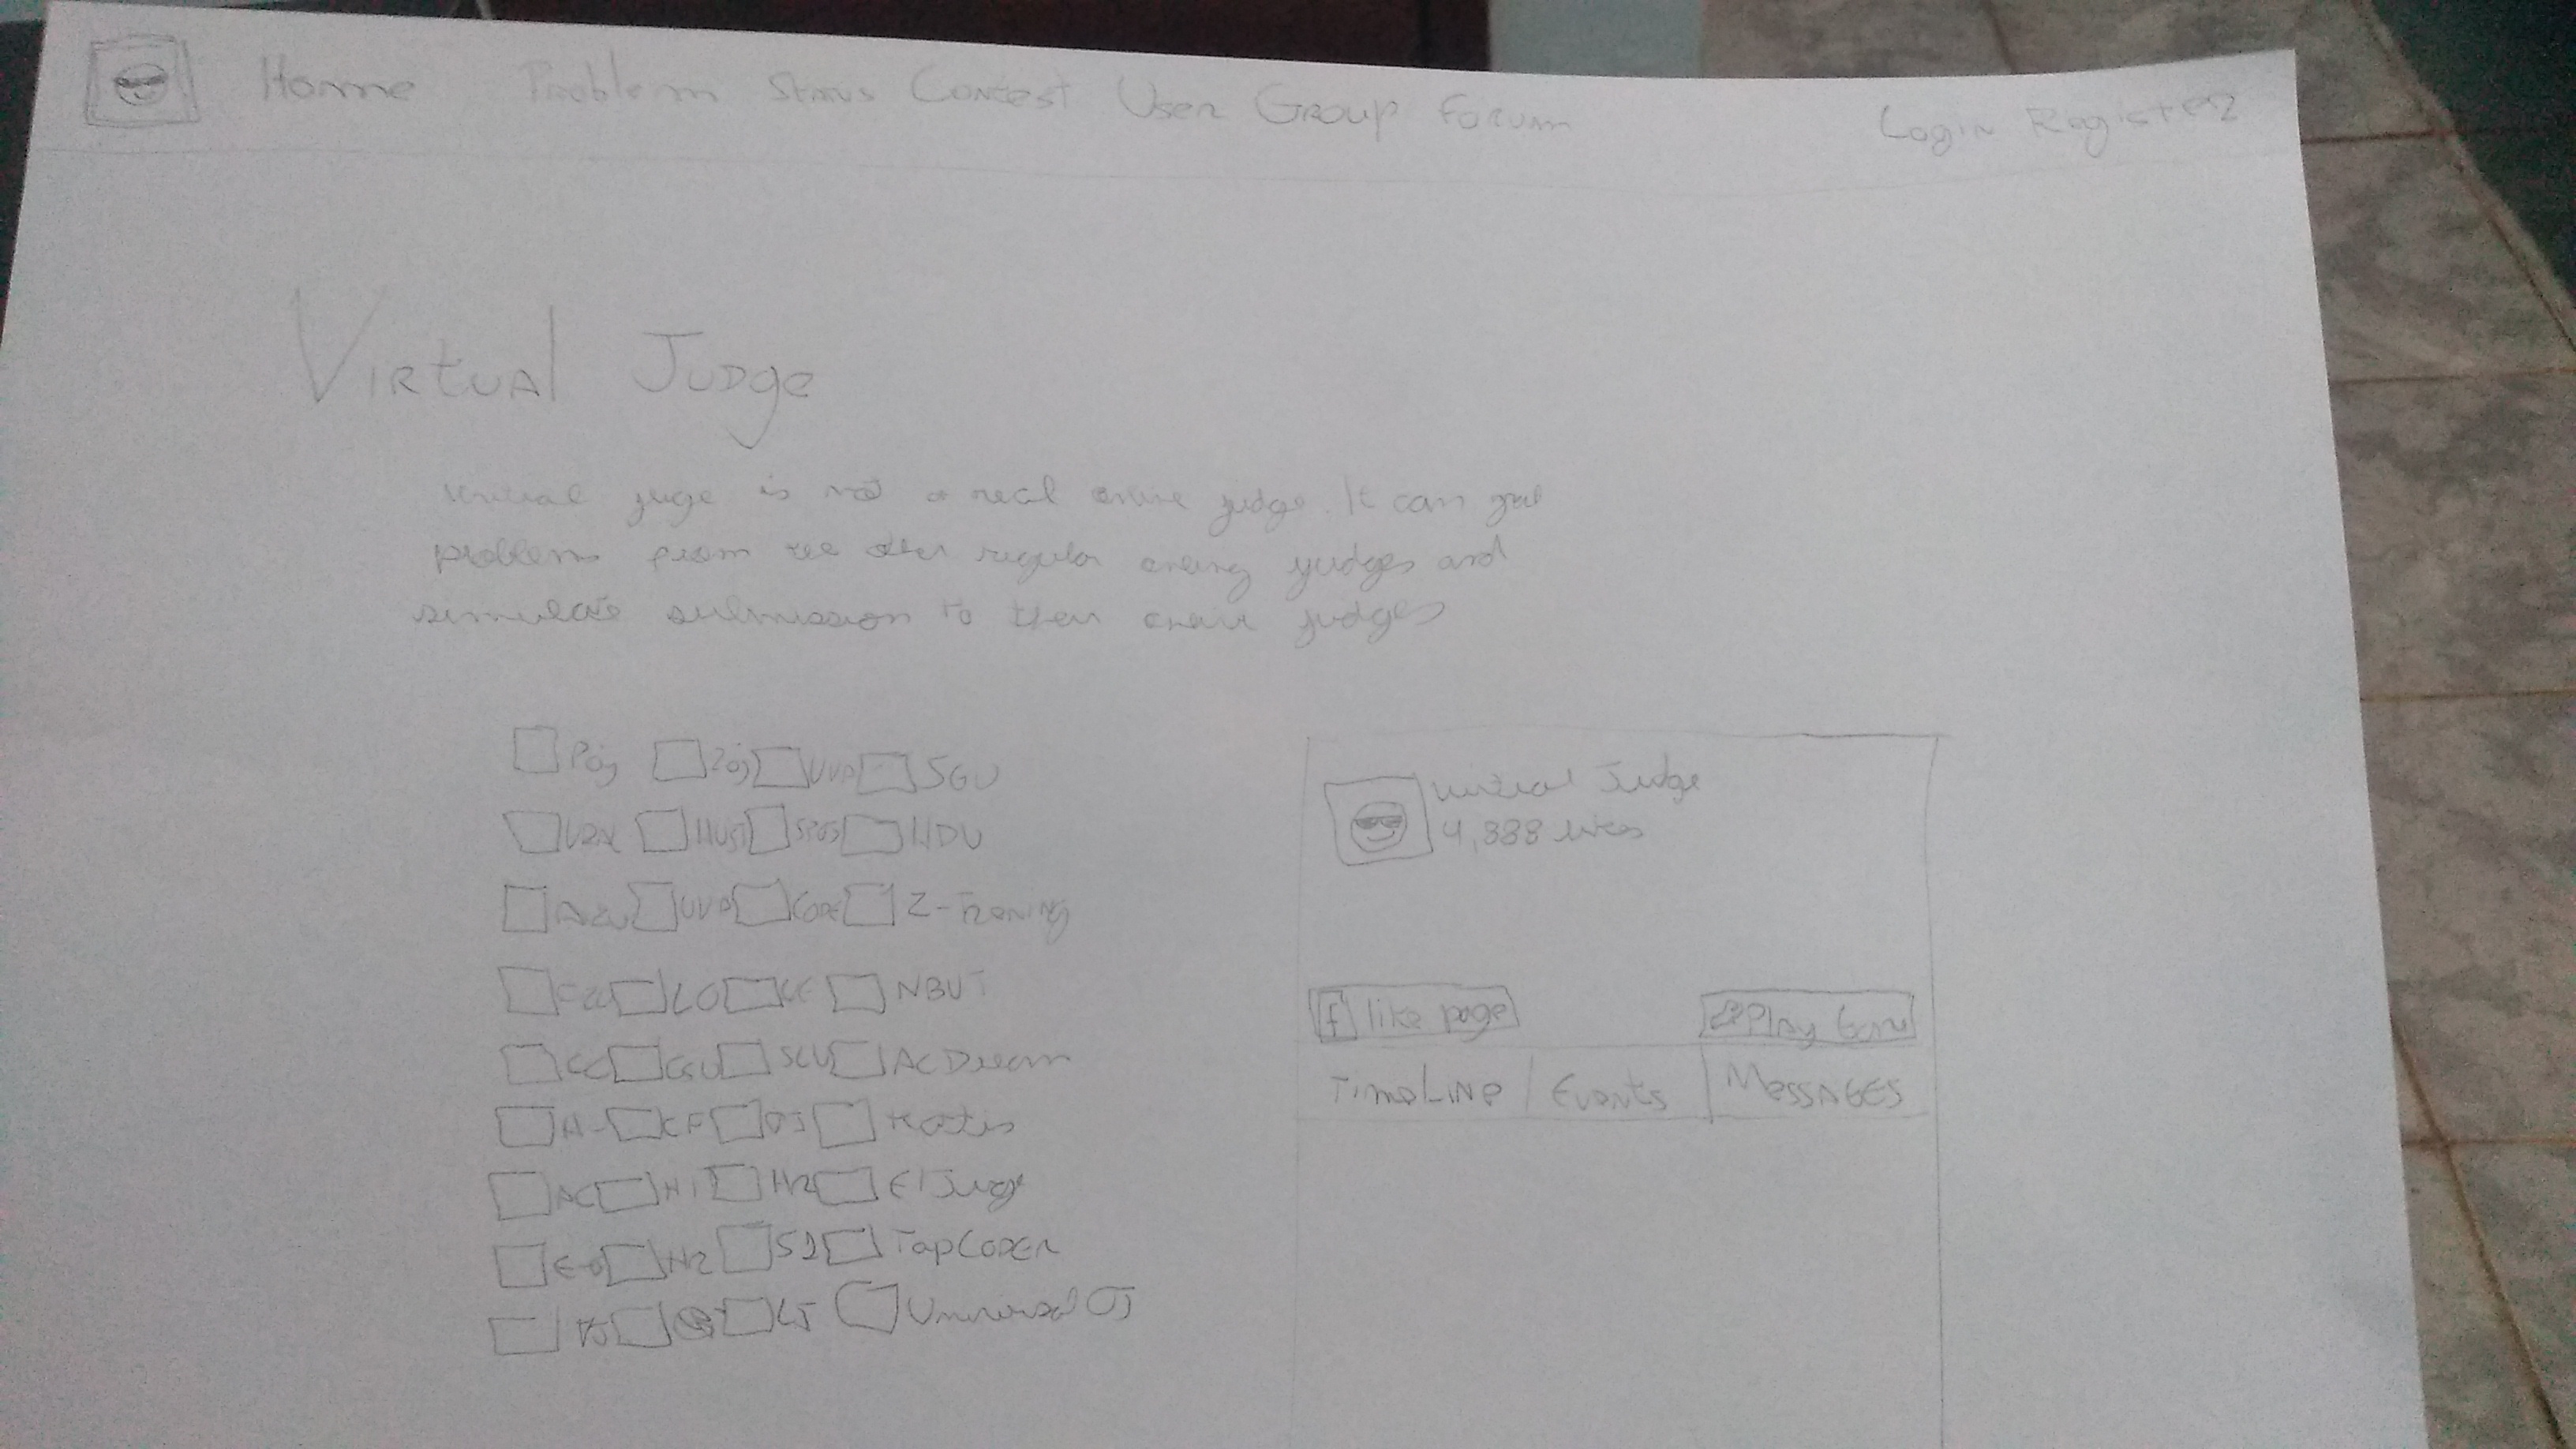 Home Problem Status Contest User Group Forum Login Register
Virtual Judge
virtual juge is not a real online judge. It can
problems from the other regular judges and
simulate submission to their online judges
Poj Zoj UVA SGU
URAL HUST SPOJ HDU
UVA Code Z-Traning
LO CF NBUT
CC CSU SCU ACDream
A- CF OJ Kattis
AC H1 HR E1Judge
E-O HR S2 TopCoder
LJ Universal OJ
virtual Judge
4,388 likes
f like page Play Game
TimeLine Events Messages